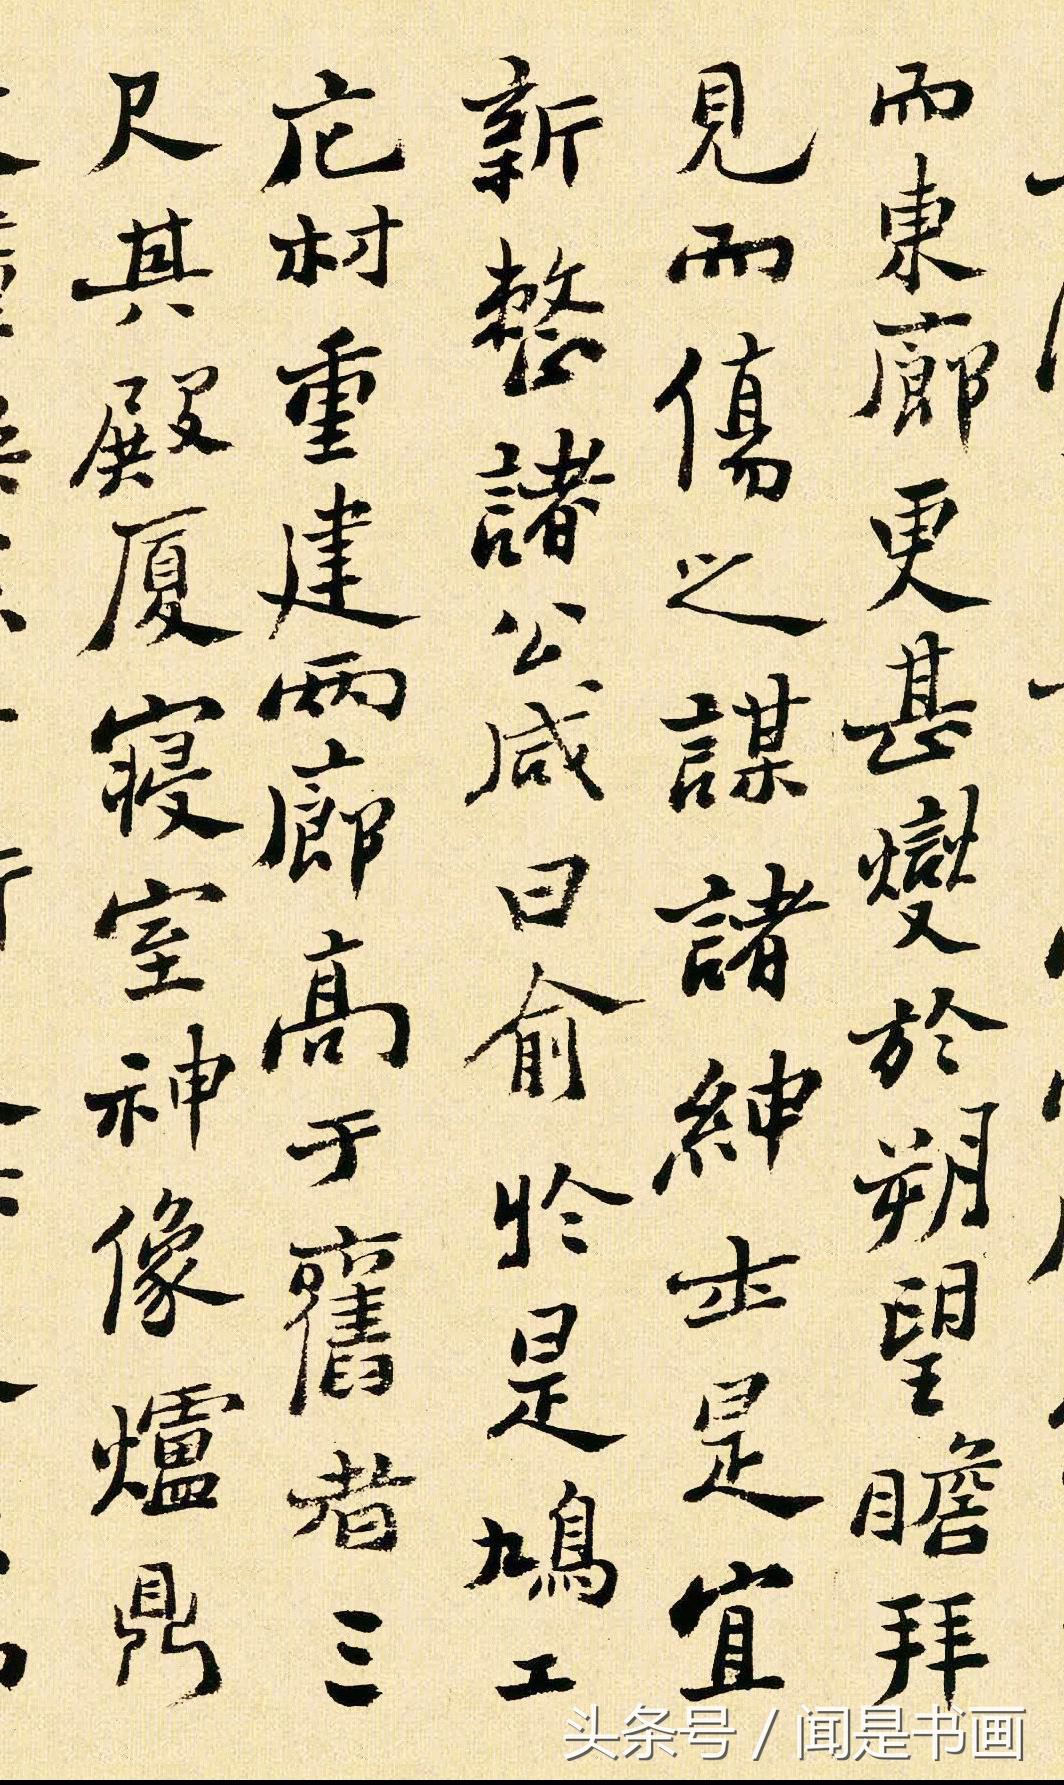 而東廊更甚燮於朔望瞻拜
見而傷之謀諸紳士是宜
新整諸公咸曰俞於是鳩工
庀材重建兩廊高于舊者三
尺其殿厦寢室神像爐鼎
头条号 / 闻是书画